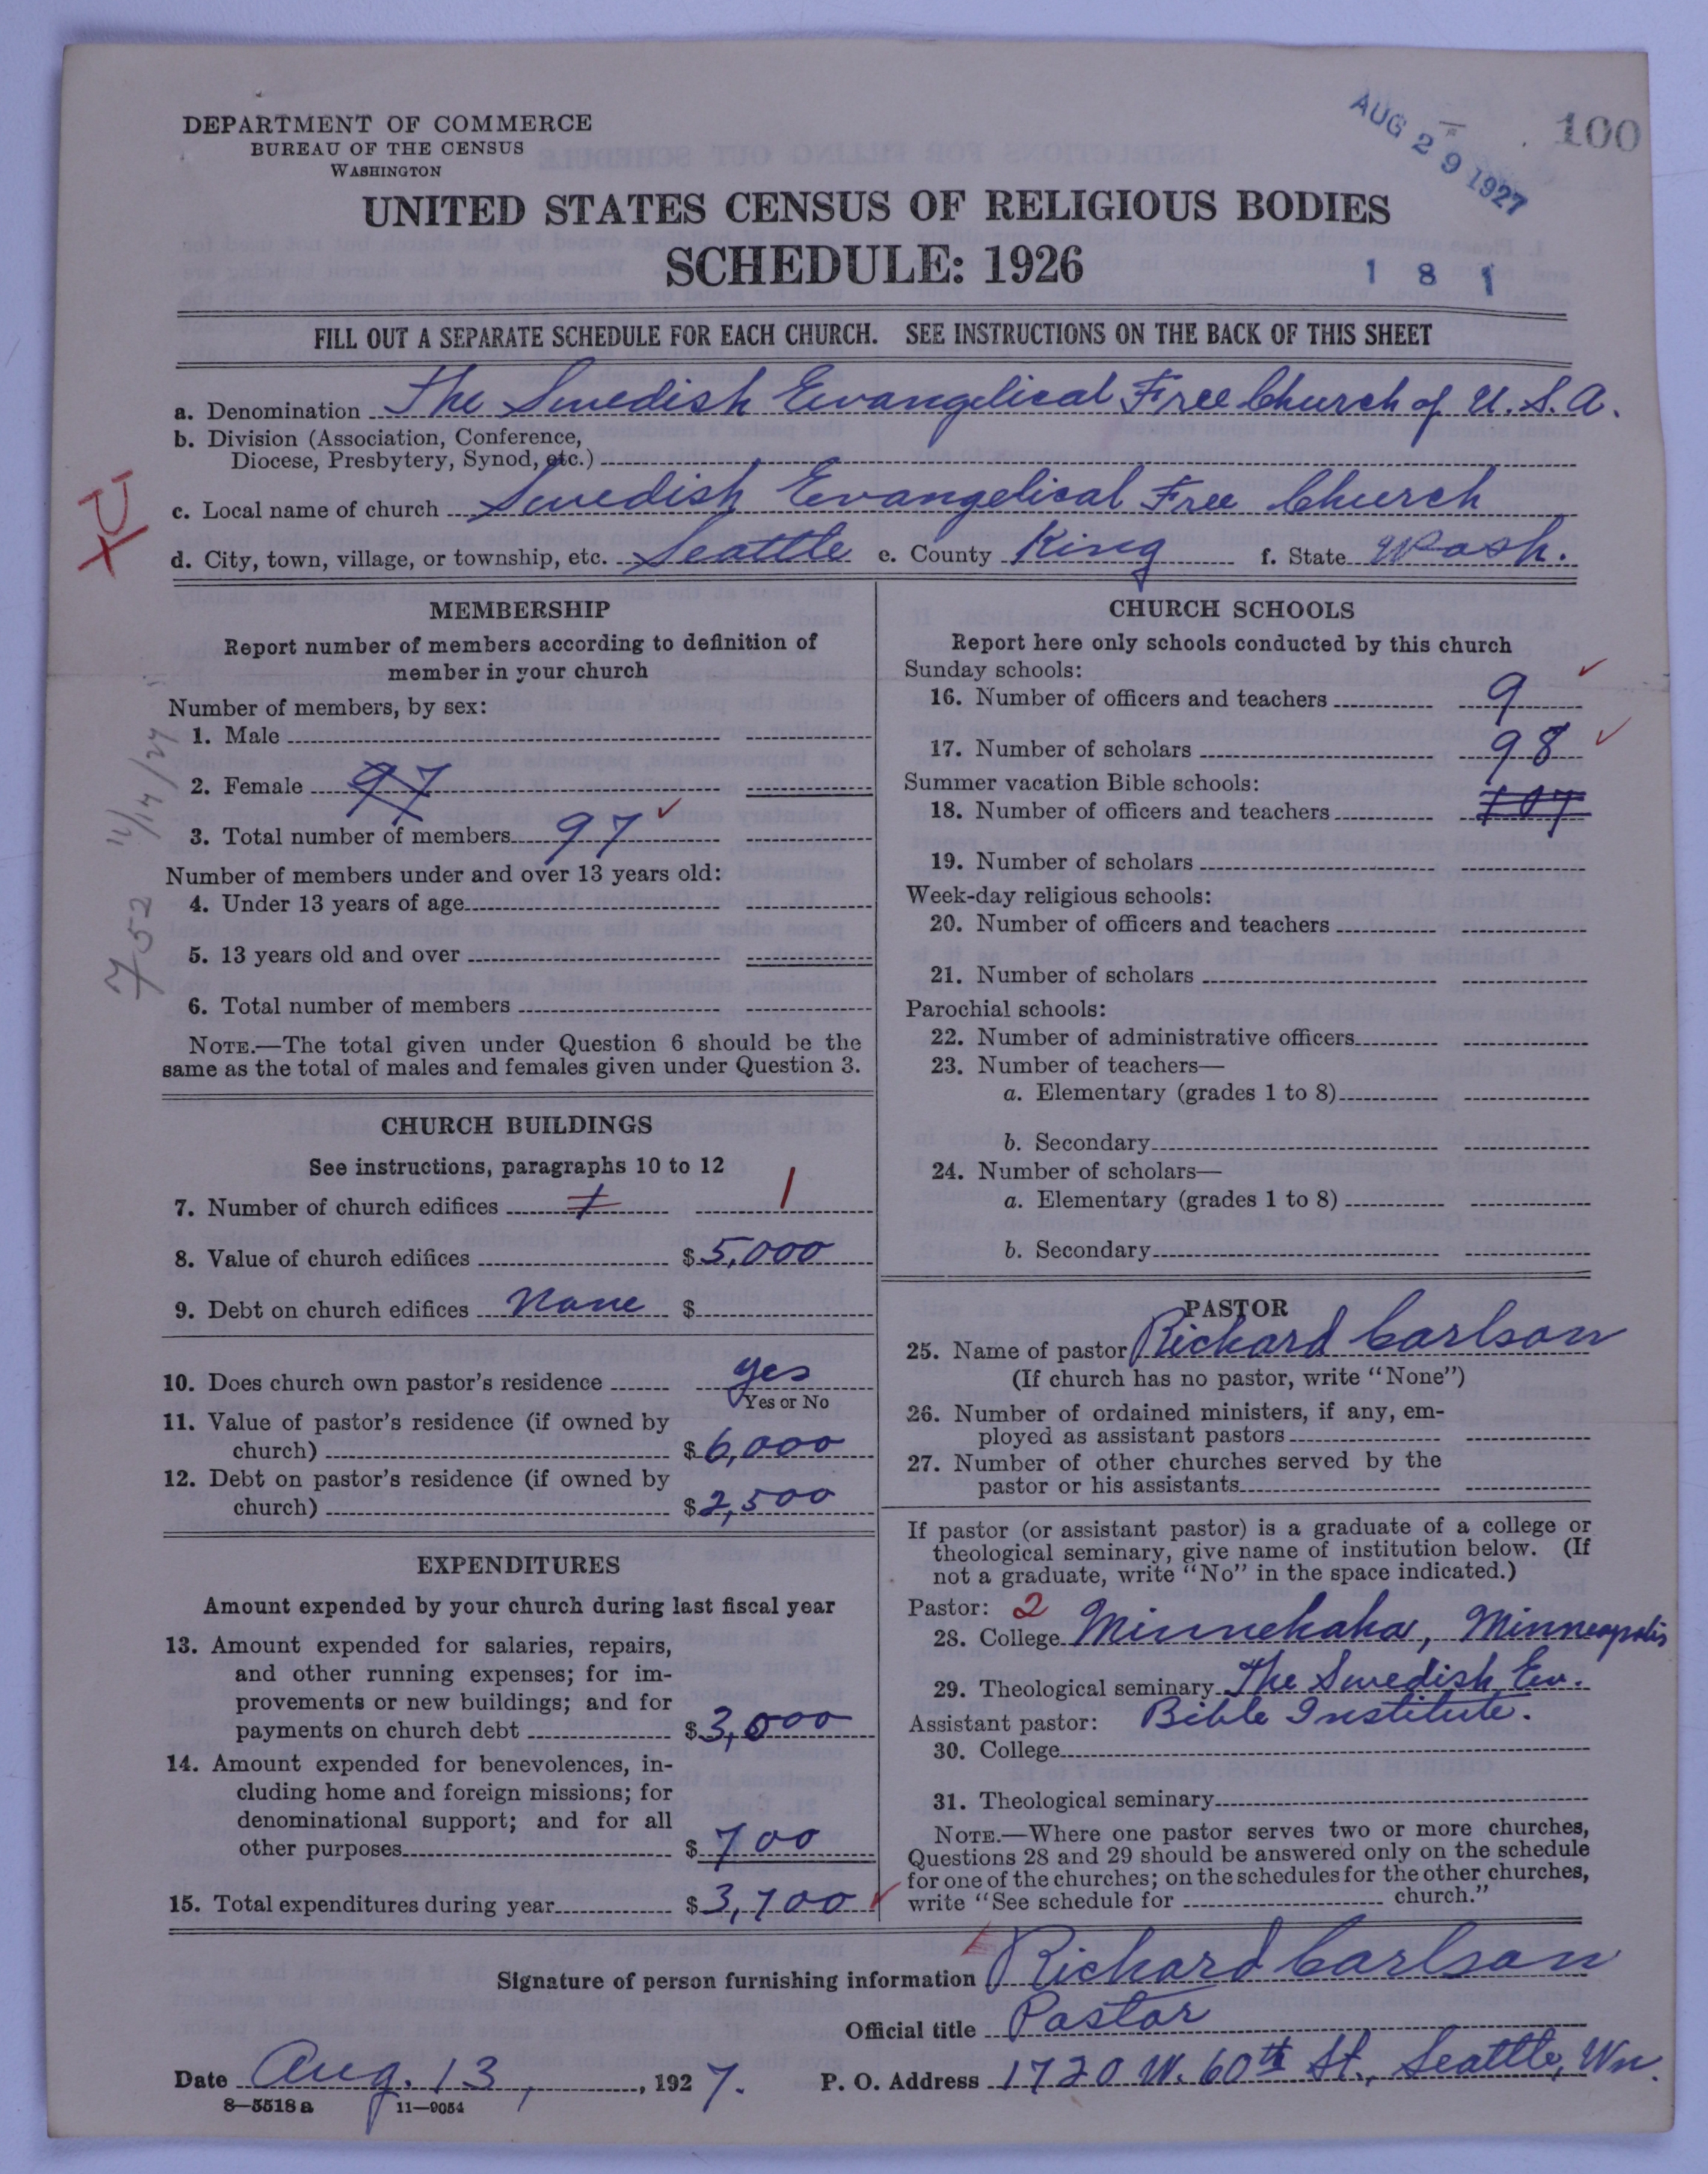 DEPARTMENT OF COMMERCE
BUREAU OF THE CENSUS
WASHINGTON
AUG 29 1927
100
UNITED STATES CENSUS OF RELIGIOUS BODIES
SCHEDULE: 1926
1 8 1
FILL OUT A SEPARATE SCHEDULE FOR EACH CHURCH. SEE INSTRUCTIONS ON THE BACK OF THIS SHEET
a. Denomination The Swedish Evangelical Free Church of U.S.A.
b. Division (Association, Conference,
Diocese, Presbytery, Synod, etc.)
c. Local name of church Swedish Evangelical Free Church
d. City, town, village, or township, etc. Seattle e. County King f. State Wash.
MEMBERSHIP
Report number of members according to definition of
member in your church
Number of members, by sex:
1. Male
2. Female 97
3. Total number of members 97
Number of members under and over 13 years old:
4. Under 13 years of age
5. 13 years old and over
6. Total number of members
NOTE.—The total given under Question 6 should be the
same as the total of males and females given under Question 3.
11/14/27
752
CHURCH BUILDINGS
See instructions, paragraphs 10 to 12
7. Number of church edifices 1 1
8. Value of church edifices $ 5,000
9. Debt on church edifices None $
10. Does church own pastor's residence yes
Yes or No
11. Value of pastor's residence (if owned by
church) $ 6,000
12. Debt on pastor's residence (if owned by
church) $ 2,500
EXPENDITURES
Amount expended by your church during last fiscal year
13. Amount expended for salaries, repairs,
and other running expenses; for im-
provements or new buildings; and for
payments on church debt $ 3,000
14. Amount expended for benevolences, in-
cluding home and foreign missions; for
denominational support; and for all
other purposes $ 700
15. Total expenditures during year $ 3,700
CHURCH SCHOOLS
Report here only schools conducted by this church
Sunday schools:
16. Number of officers and teachers 9
17. Number of scholars 98
Summer vacation Bible schools:
18. Number of officers and teachers 107
19. Number of scholars
Week-day religious schools:
20. Number of officers and teachers
21. Number of scholars
Parochial schools:
22. Number of administrative officers
23. Number of teachers—
a. Elementary (grades 1 to 8)
b. Secondary
24. Number of scholars—
a. Elementary (grades 1 to 8)
b. Secondary
PASTOR
25. Name of pastor Richard Carlson
(If church has no pastor, write "None")
26. Number of ordained ministers, if any, em-
ployed as assistant pastors
27. Number of other churches served by the
pastor or his assistants
If pastor (or assistant pastor) is a graduate of a college or
theological seminary, give name of institution below. (If
not a graduate, write "No" in the space indicated.)
Pastor: 2
28. College Minnehaha, Minneapolis
29. Theological seminary The Swedish Ev.
Assistant pastor: Bible Institute.
30. College
31. Theological seminary
NOTE.—Where one pastor serves two or more churches,
Questions 28 and 29 should be answered only on the schedule
for one of the churches; on the schedules for the other churches,
write "See schedule for church."
Signature of person furnishing information Richard Carlson
Official title Pastor
Date Aug. 13, 1927. P. O. Address 1720 W. 60th St., Seattle, Wn.
8—5518 a 11—9054